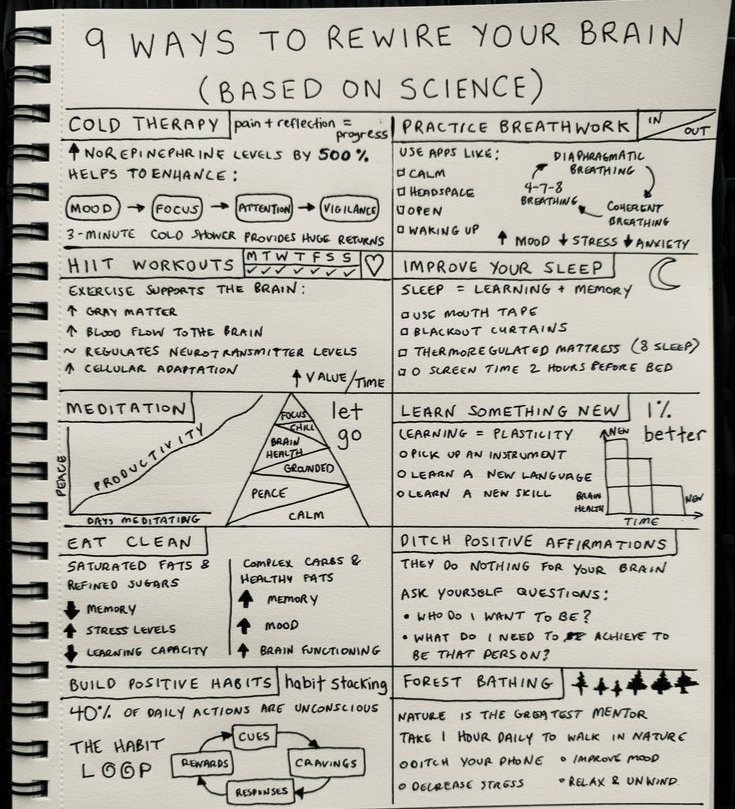 9 WAYS TO REWIRE YOUR BRAIN
(BASED ON SCIENCE)
COLD THERAPY
pain + reflection =
progress
↑ NOREPINEPHRINE LEVELS BY 500%
HELPS TO ENHANCE:
MOOD → FOCUS → ATTENTION → VIGILANCE
3-MINUTE COLD SHOWER PROVIDES HUGE RETURNS
PRACTICE BREATHWORK
IN
OUT
USE APPS LIKE:
□ CALM
□ HEADSPACE
□ OPEN
□ WAKING UP
DIAPHRAGMATIC
BREATHING
4-7-8
BREATHING
COHERENT
BREATHING
↑ MOOD ↓ STRESS ↓ ANXIETY
HIIT WORKOUTS
M T W T F S S
✓ ✓ ✓ ✓ ✓ ✓ ✓
EXERCISE SUPPORTS THE BRAIN:
↑ GRAY MATTER
↑ BLOOD FLOW TO THE BRAIN
~ REGULATES NEUROTRANSMITTER LEVELS
↑ CELLULAR ADAPTATION
↑ VALUE/TIME
IMPROVE YOUR SLEEP
SLEEP = LEARNING + MEMORY
□ USE MOUTH TAPE
□ BLACKOUT CURTAINS
□ THERMOREGULATED MATTRESS (8 SLEEP)
□ 0 SCREEN TIME 2 HOURS BEFORE BED
MEDITATION
PEACE
PRODUCTIVITY
DAYS MEDITATING
FOCUS
CHILL
BRAIN
HEALTH
GROUNDED
PEACE
CALM
let
go
LEARN SOMETHING NEW
1%
better
LEARNING = PLASTICITY
○ PICK UP AN INSTRUMENT
○ LEARN A NEW LANGUAGE
○ LEARN A NEW SKILL
NEW
BRAIN
HEALTH
NEW
TIME
EAT CLEAN
SATURATED FATS &
REFINED SUGARS
↓ MEMORY
↑ STRESS LEVELS
↓ LEARNING CAPACITY
COMPLEX CARBS &
HEALTHY FATS
↑ MEMORY
↑ MOOD
↑ BRAIN FUNCTIONING
DITCH POSITIVE AFFIRMATIONS
THEY DO NOTHING FOR YOUR BRAIN
ASK YOURSELF QUESTIONS:
• WHO DO I WANT TO BE?
• WHAT DO I NEED TO ACHIEVE TO
BE THAT PERSON?
BUILD POSITIVE HABITS
habit stacking
40% OF DAILY ACTIONS ARE UNCONSCIOUS
THE HABIT
LOOP
CUES
CRAVINGS
RESPONSES
REWARDS
FOREST BATHING
NATURE IS THE GREATEST MENTOR
TAKE 1 HOUR DAILY TO WALK IN NATURE
○ DITCH YOUR PHONE ○ IMPROVE MOOD
○ DECREASE STRESS • RELAX & UNWIND